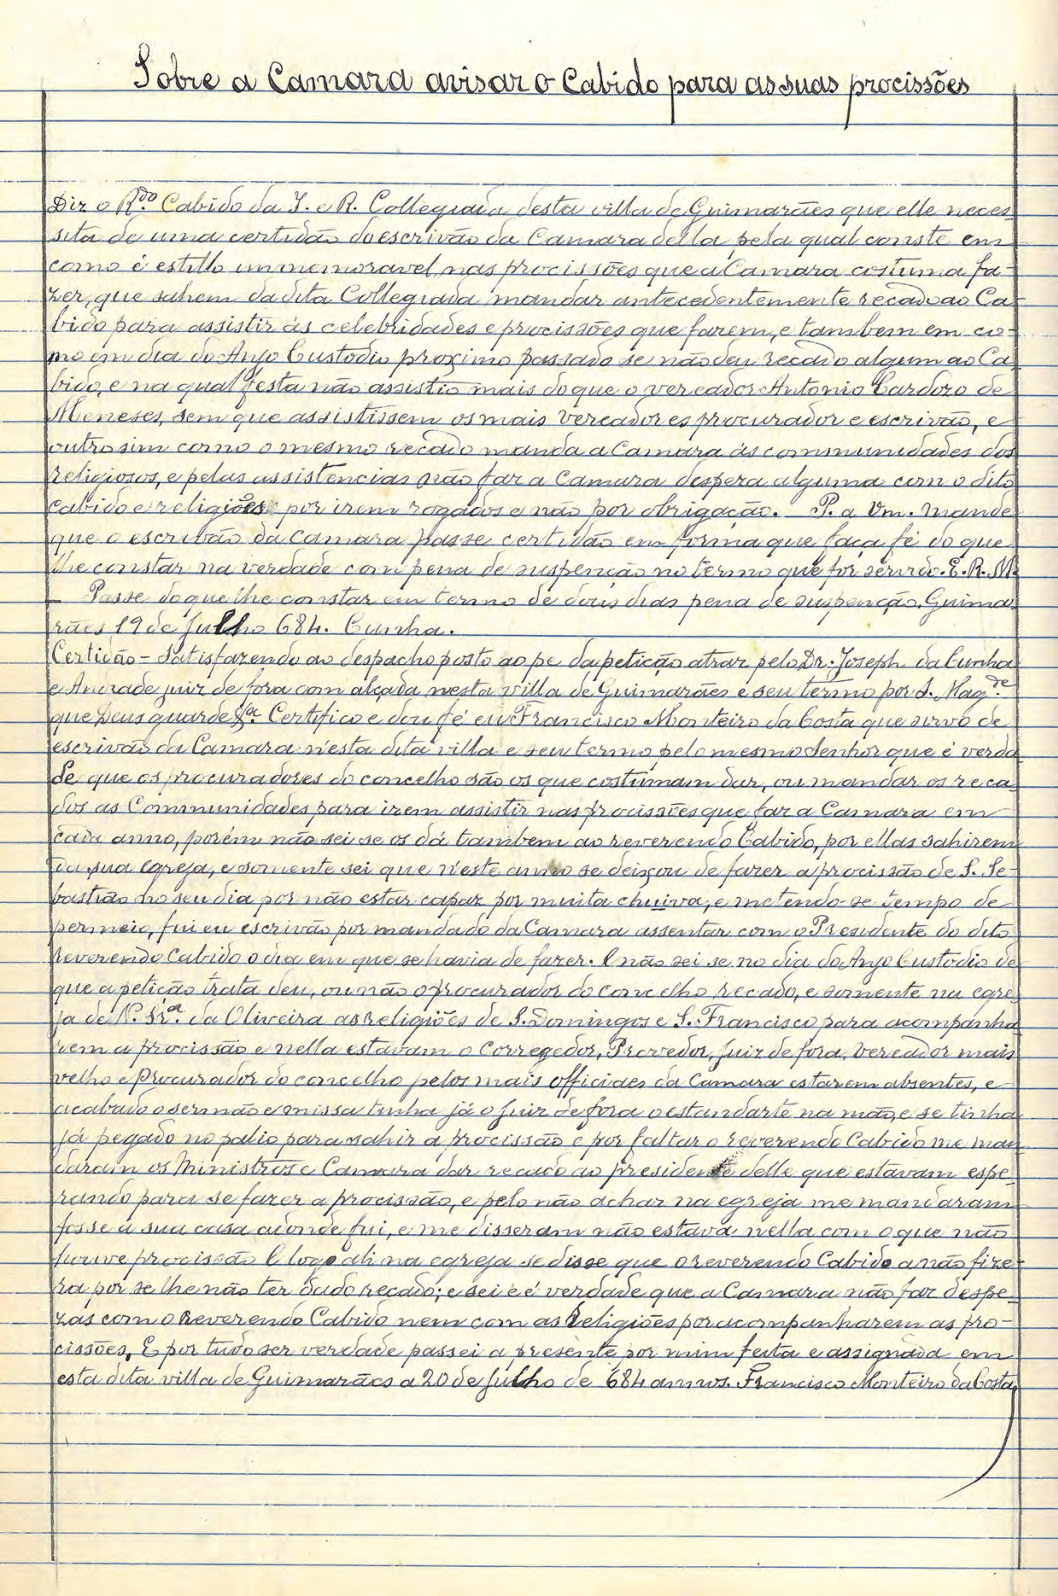 Sobre a Camara avisar o Cabido para as suas procissões
Diz o R.do Cabido da I. e R. Collegiada desta villa de Guimarães que elle neces-
sita de uma certidão do escrivão da Camara della, pela qual conste em
como é estillo immemoravel, nas procissões que a Camara costuma fa-
zer, que sahem da dita Collegiada mandar antecedentemente recado ao Ca-
bido para assistir ás celebridades e procissões que fazem, e tambem em co-
mo em dia do Anjo Custodio proximo passado se não deu recado algum ao Ca-
bido, e na qual festa não assistio mais do que o vereador Antonio Cardozo de
Meneses, sem que assistissem os mais vereadores procurador e escrivão, e
outro sim como o mesmo recado manda a Camara ás communidades dos
religiosos, e pelas assistencias não faz a Camara despeza alguma com o dito
cabido e religiões por irem rogados e não por obrigação. P. a Vm. mande
que o escrivão da Camara passe certidão em forma que faça fé do que
lhe constar na verdade com pena de suspenção no termo que for servido. E. R. M.
Passe do que lhe constar em termo de dous dias pena de suspenção. Guima-
rães 19 de Julho 684. Cunha.
Certidão - Satisfazendo ao despacho posto ao pe da petição atraz pelo Dr. Joseph da Cunha
e Andrade juiz de fora com alçada nesta villa de Guimarães e seu termo por S. Mag.de
que Deus guarde &a. Certifico e dou fé eu Francisco Monteiro da Costa que sirvo de
escrivão da Camara n'esta dita villa e seu termo pelo mesmo Senhor que é verda-
de que os procuradores do concelho são os que costumam dar, ou mandar os reca-
dos as Communidades para irem assistir nas procissões que faz a Camara em
cada anno, porém não sei se os dá tambem ao reverendo Cabido, por ellas sahirem
da sua Egreja, e somente sei que n'este anno se deixou de fazer a procissão de S. Se-
bastião no seu dia por não estar capaz por muita chuiva, e metendo-se tempo de
permeio, fui eu escrivão por mandado da Camara assentar com o Presidente do dito
reverendo Cabido o dia em que se havia de fazer. E não sei se no dia do Anjo Custodio de
que a petição trata deu, ou não o procurador do concelho recado, e somente na egre-
ja de N. Sr.a da Oliveira as Religiões de S. Domingos e S. Francisco para acompanha-
rem a procissão e nella estavam o Corregedor, Provedor, Juiz de fora, vereador mais
velho e Procurador do concelho pelos mais officiaes da Camara estarem absentes, e
acabado o sermão e missa tinha já o Juiz de fora o estandarte na mão, e se tinha
já pegado no palio para sahir a procissão e por faltar o reverendo Cabido me man-
daram os Ministros e Camara dar recado ao presidente delle que estavam espe-
rando para se fazer a procissão, e pelo não achar na egreja me mandaram
fosse a sua casa adonde fui, e me disseram não estava nella com o que não
houve procissão E logo ali na egreja se disse que o reverendo Cabido a não fize-
ra por se lhe não ter dado recado; e sei e é verdade que a Camara não faz despe-
zas com o Reverendo Cabido nem com as Religiões por acompanharem as pro-
cissões, E por tudo ser verdade passei a presente por mim feita e assignada em
esta dita villa de Guimarães a 20 de Julho de 684 annos. Francisco Monteiro da Costa,